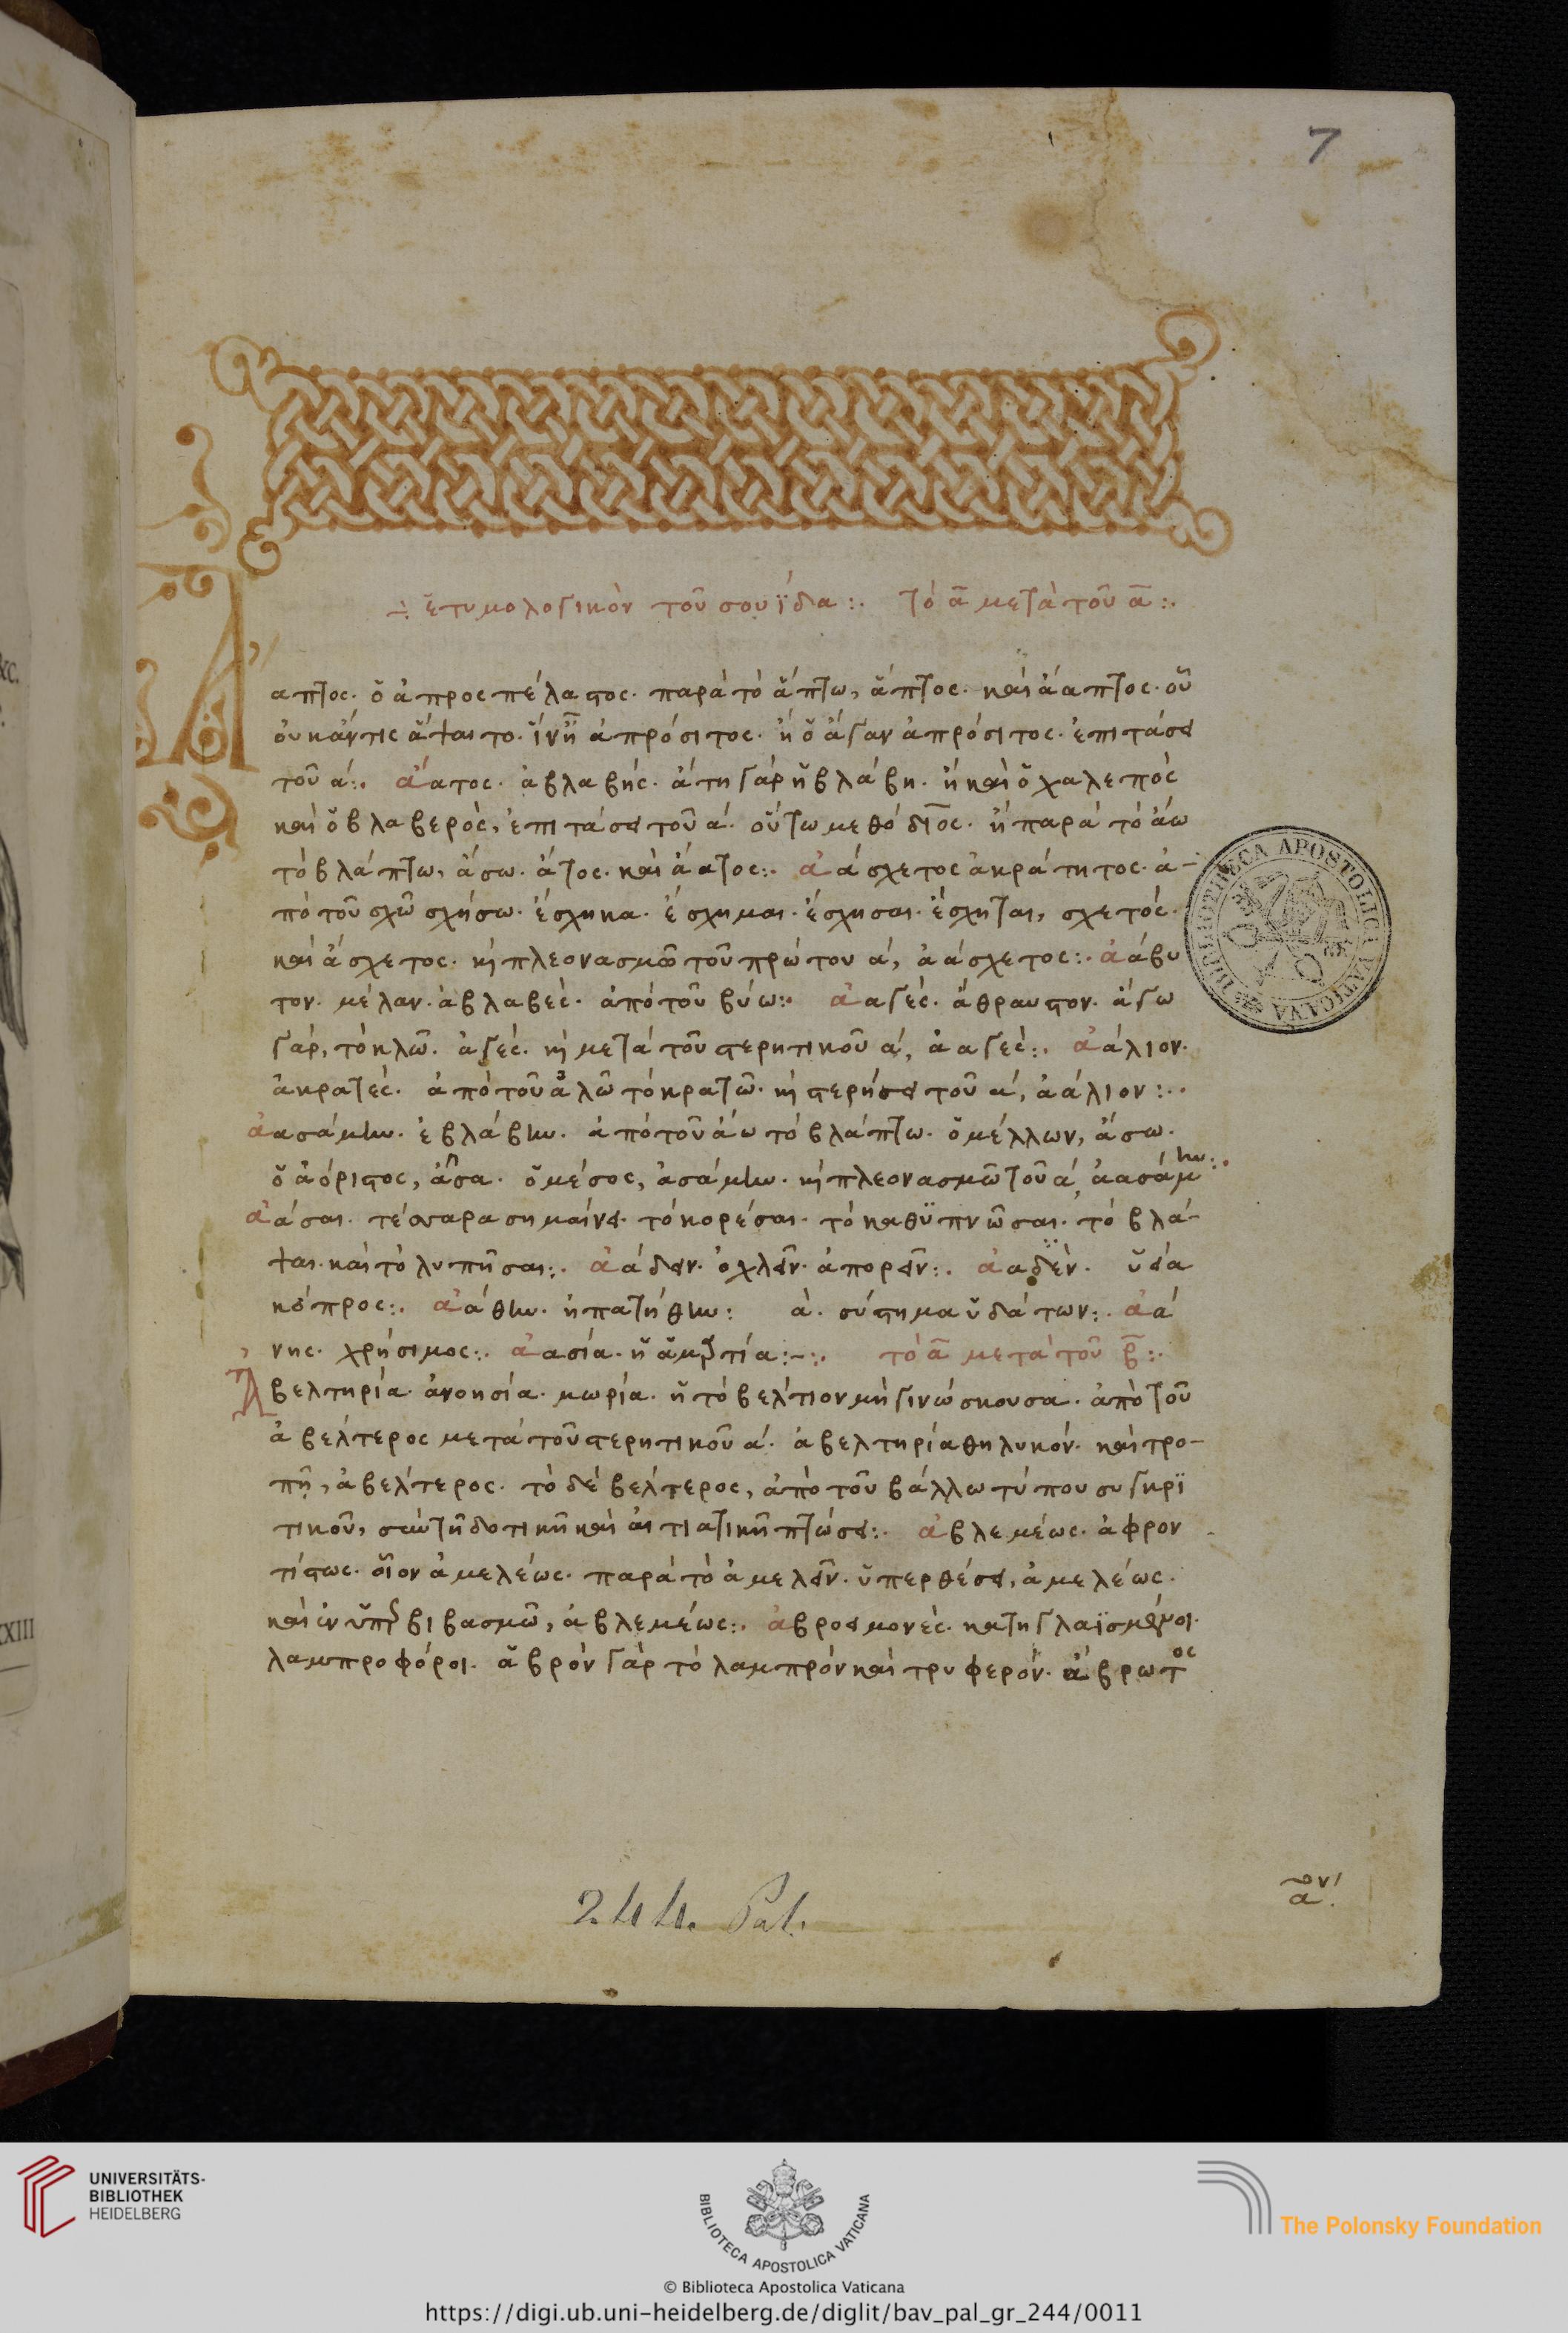 7
÷ ἐτυμολογικὸν τοῦ σουΐδα:. τὸ α̅ μετὰ τοῦ α̅:.
Ἄαπτος. ὁ ἀπροσπέλαστος. παρὰ τὸ ἅπτω, ἅπτος. καὶ ἄαπτος. οὗ
οὐκ ἄν τις ἅψαιτο. ἵν' ᾖ ἀπρόσιτος. ἢ ὁ ἄγαν ἀπρόσιτος. ἐπιτάσει
τοῦ α:. ἄατος. ἀβλαβής. ἄτη γὰρ ἡ βλάβη. ἢ καὶ ὁ χαλεπὸς
καὶ ὁ βλαβερὸς, ἐπιτάσει τοῦ α. οὕτω μεθόδιος. ἢ παρὰ τὸ ἄω
τὸ βλάπτω, ἄσω. ἄτος. καὶ ἄατος:. ἀάσχετος ἀκράτητος. ἀ-
πὸ τοῦ σχῶ σχήσω. ἔσχηκα. ἔσχημαι. ἔσχησαι. ἔσχηται, σχετός.
καὶ ἄσχετος. κὶ πλεονασμῶ τοῦ πρώτου α, ἀάσχετος:. ἀάβυ
τον. μέλαν. ἀβλαβές. ἀπὸ τοῦ βύω:. ἀαγές. ἄθραυστον. ἄγω
γὰρ, τὸ κλῶ. ἀγές. κὶ μετὰ τοῦ στερητικοῦ α, ἀαγές:. ἀάλιον.
ἀκρατές. ἀπὸ τοῦ ἁλῶ τὸ κρατῶ. κὶ στερήσει τοῦ α, ἀάλιον:.
ἀασάμην. ἐβλάβην. ἀπὸ τοῦ ἄω τὸ βλάπτω. ὁ μέλλων, ἄσω.
ὁ ἀόριστος, ἆσα. ὁ μέσος, ἀσάμην. κὶ πλεονασμῶ τοῦ α, ἀασάμην:.
ἀάσαι. τέσσαρα σημαίνει. τὸ κορέσαι. τὸ καθϋπνῶσαι. τὸ βλά-
ψαι. καὶ τὸ λυπῆσαι:. ἀάδειν. ὀχλεῖν. ἀπορεῖν:. ἀαδὲν. ὑεία
κόπρος:. ἀάθην. ἠπατήθην: ἀ. σύστημα ὑδάτων:. ἀά
νης. χρήσιμος:. ἀασία. ἡ ἁμαρτία:-:. τὸ α̅ μετὰ τοῦ β̅:.
Ἀβελτηρία. ἀνοησία. μωρία. ἡ τὸ βέλτιον μὴ γινώσκουσα. ἀπὸ τοῦ
ἀβέλτερος μετὰ τοῦ στερητικοῦ α. ἀβελτηρία θηλυκόν. καὶ τρο-
πῇ, ἀβέλτερος. τὸ δὲ βέλτερος, ἀπὸ τοῦ βάλλω τύπου συγκρϊ
τικοῦ, σὺν τῇ δοτικῇ καὶ αἰτιατικῇ πτώσει:. ἀβλεμέως. ἀφρον
τίστως. οἷον ἀμελέως. παρὰ τὸ ἀμελεῖν. ὑπερθέσει, ἀμελέως.
καὶ ἐν ὑπερβιβασμῶ, ἀβλεμέως:. ἁβροείμονες. κατηγλαϊσμένοι.
λαμπροφόροι. ἁβρὸν γὰρ τὸ λαμπρόν καὶ τρυφερόν. ἄβρωτος
244. Pal.
α̅ον.
BIBLIOTHECA APOSTOLICA VATICANA
UNIVERSITÄTS-
BIBLIOTHEK
HEIDELBERG
BIBLIOTECA APOSTOLICA VATICANA
The Polonsky Foundation
© Biblioteca Apostolica Vaticana
https://digi.ub.uni-heidelberg.de/diglit/bav_pal_gr_244/0011
XXIII